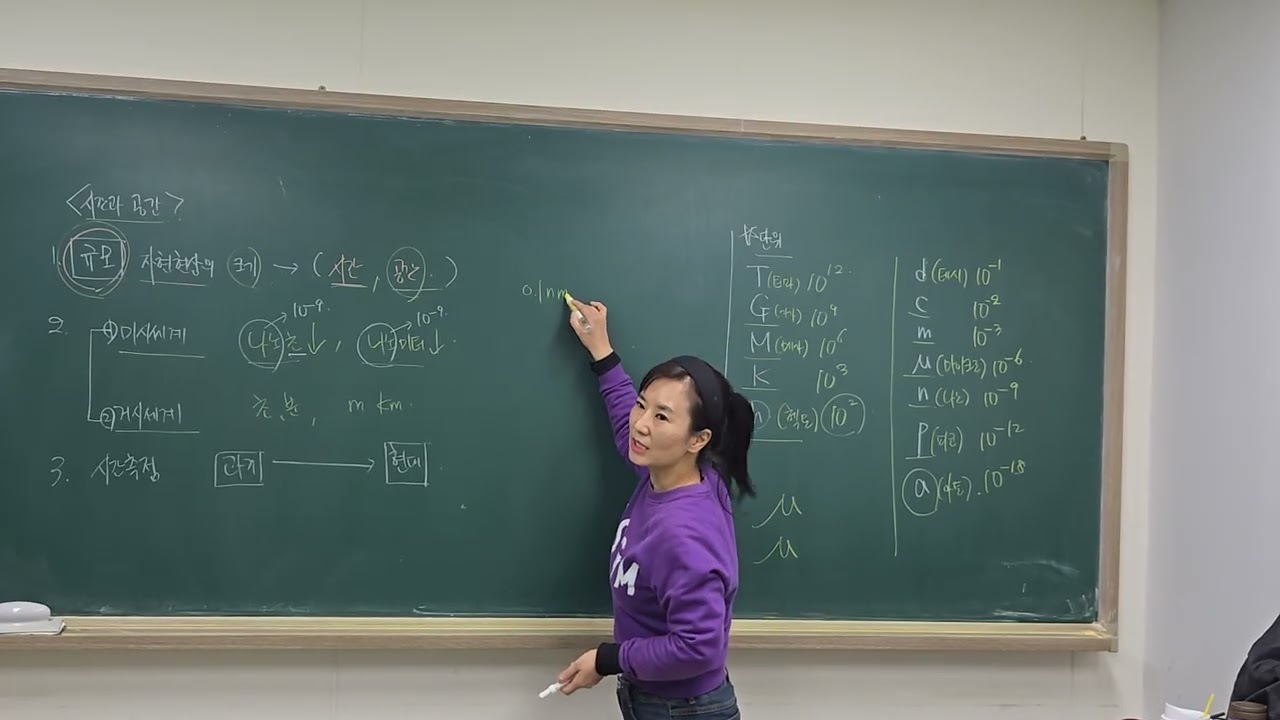 <시간과 공간>
1. 규모 자연현상의 크기 → (시간, 공간.)
10⁻⁹. 10⁻⁹.
2. ① 미시세계 나노초↓, 나노미터↓.
② 거시세계 초, 분, m km.
3. 시간측정 과거 → 현대
0.1nm
*단위
T(테라) 10¹²
G(기가) 10⁹
M(메가) 10⁶
K 10³
h (헥토) 10²
μ
μ
d(데시) 10⁻¹
c 10⁻²
m 10⁻³
μ(마이크로) 10⁻⁶
n(나노) 10⁻⁹
P(피코) 10⁻¹²
a(아토). 10⁻¹⁸